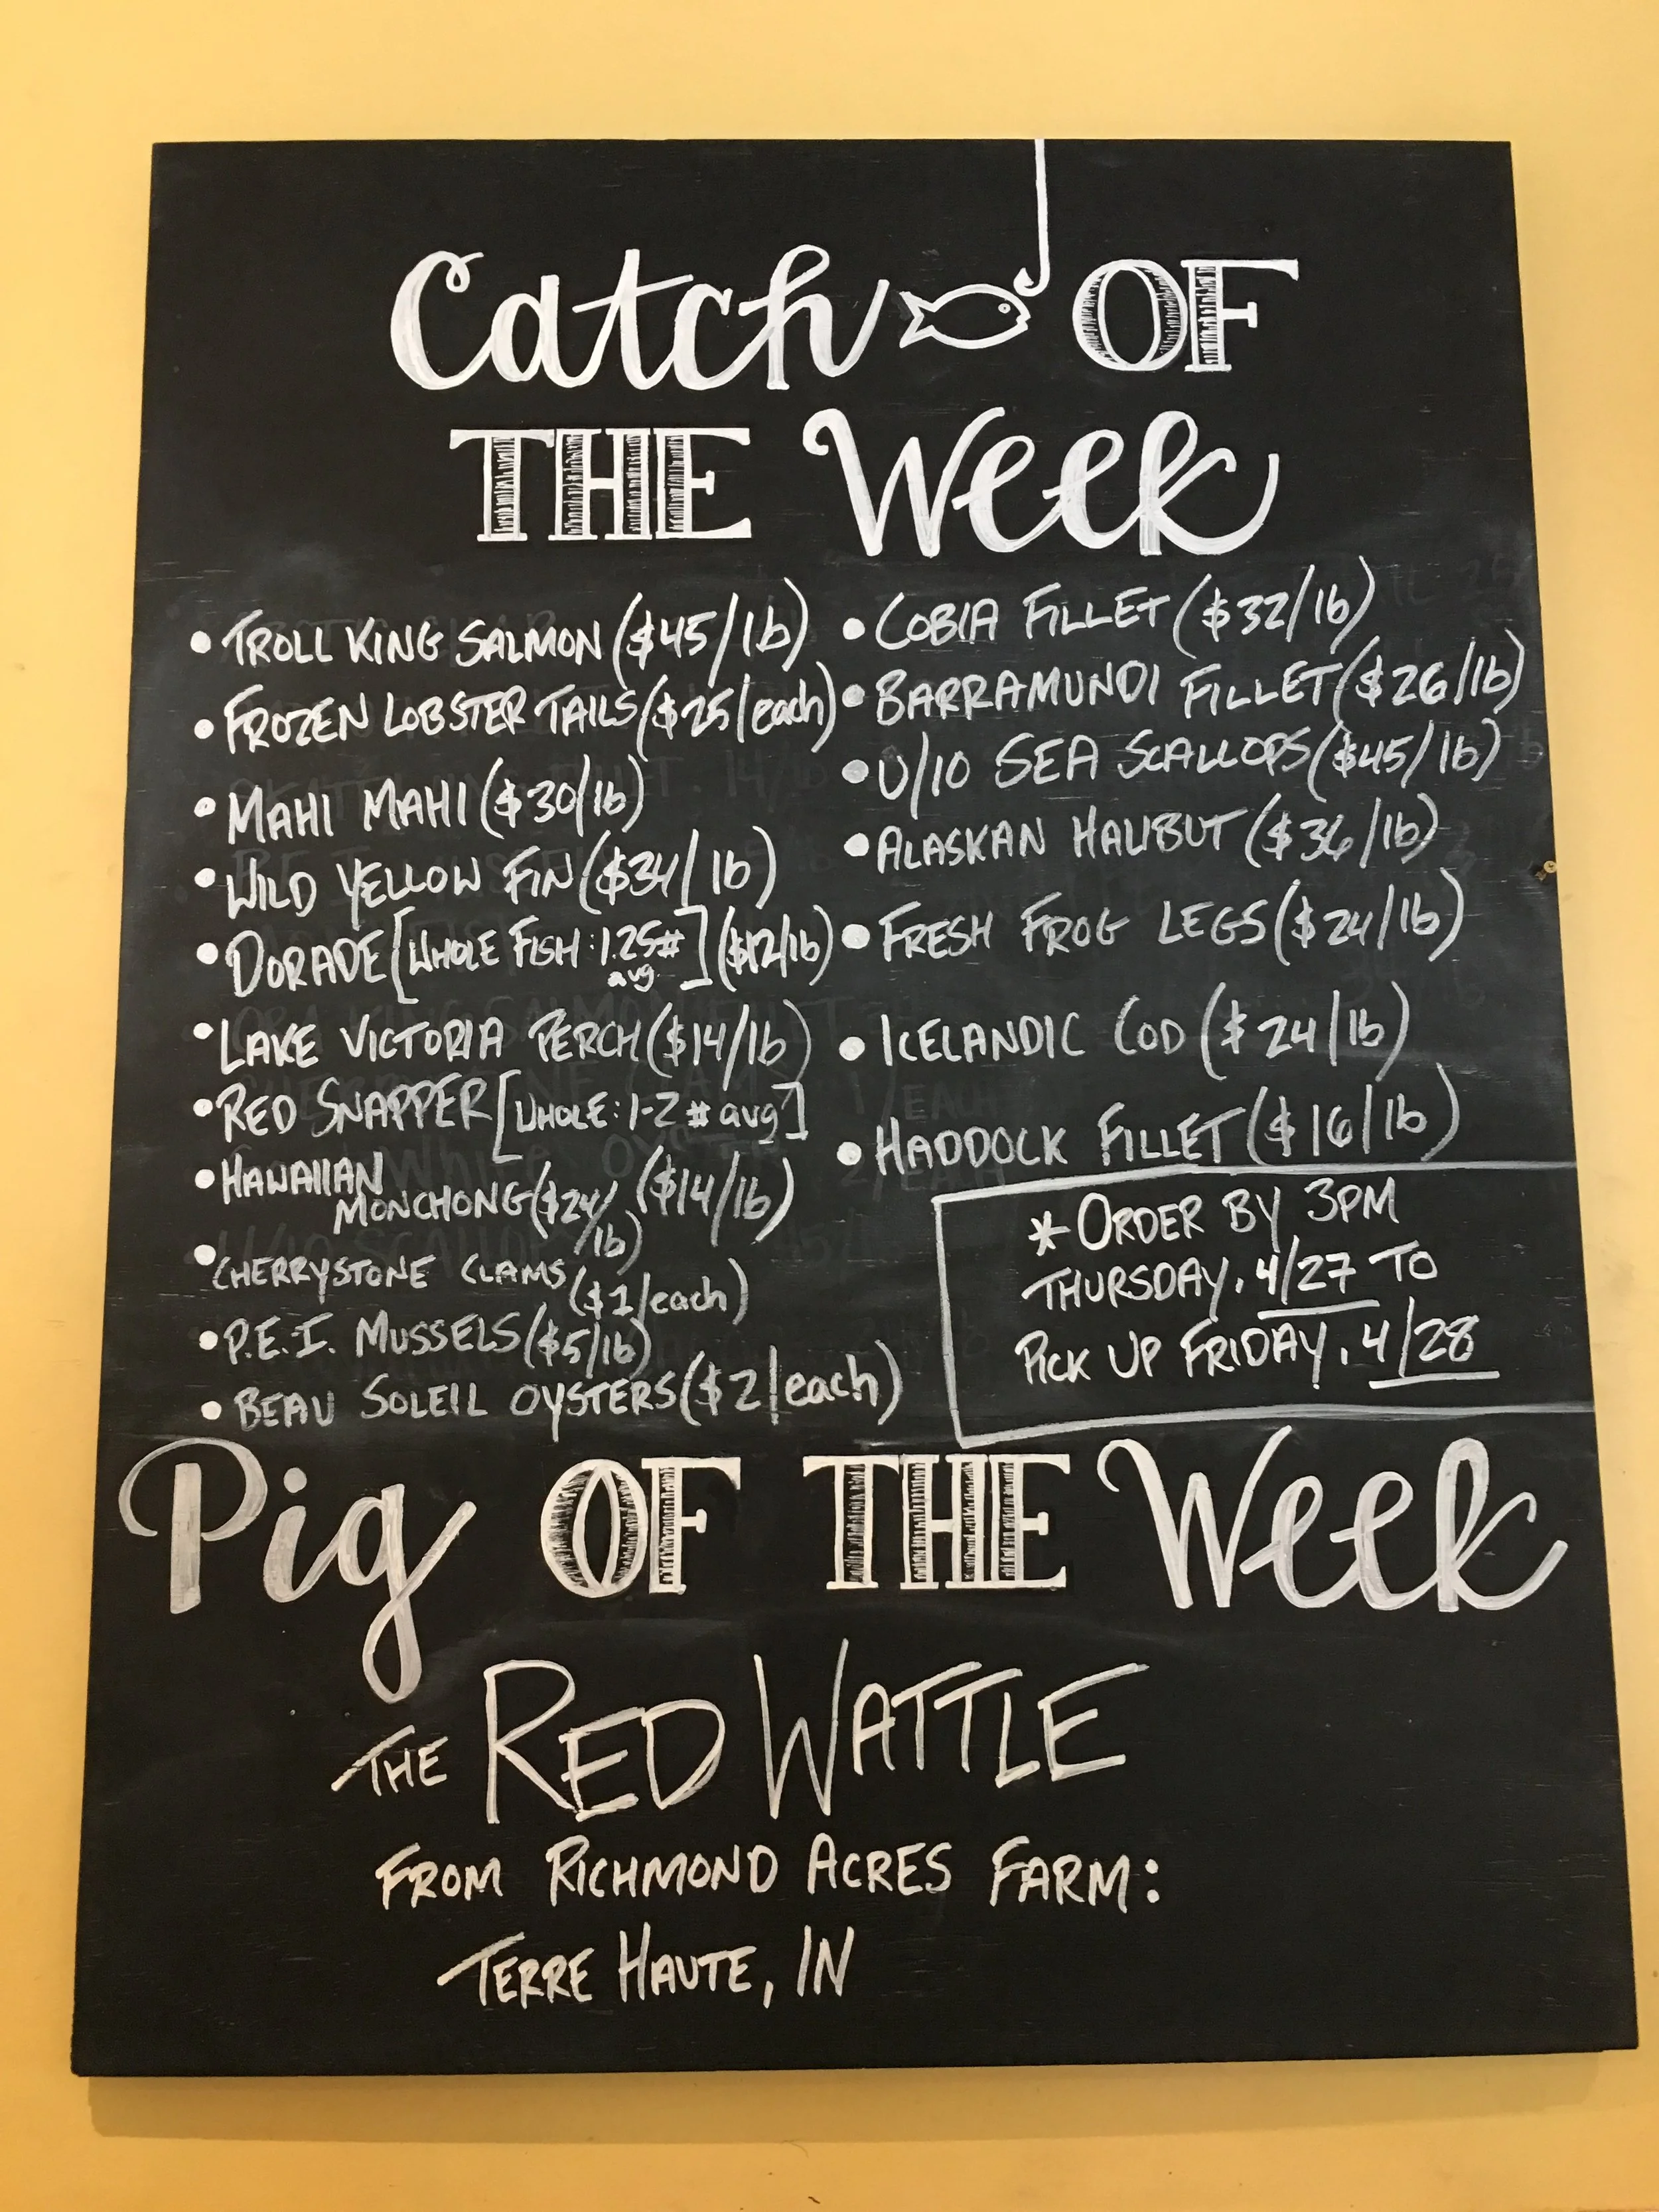 Catch OF
THE Week
• TROLL KING SALMON ($45/lb)
• FROZEN LOBSTER TAILS ($25/each)
• MAHI MAHI ($30/lb)
• WILD YELLOW FIN ($34/lb)
• DORADE [WHOLE FISH: 1.25# avg.] ($12/lb)
• LAKE VICTORIA PERCH ($14/lb)
• RED SNAPPER [WHOLE: 1-2 # avg]
($14/lb)
• HAWAIIAN
MONCHONG ($24/
lb)
• CHERRYSTONE CLAMS
($1/each)
• P.E.I. MUSSELS ($5/lb)
• BEAU SOLEIL OYSTERS ($2/each)
• COBIA FILLET ($32/lb)
• BARRAMUNDI FILLET ($26/lb)
• U/10 SEA SCALLOPS ($45/lb)
• ALASKAN HALIBUT ($36/lb)
• FRESH FROG LEGS ($24/lb)
• ICELANDIC COD ($24/lb)
• HADDOCK FILLET ($16/lb)
* ORDER BY 3PM
THURSDAY, 4/27 TO
PICK UP FRIDAY, 4/28
Pig OF THE Week
THE RED WATTLE
FROM RICHMOND ACRES FARM:
TERRE HAUTE, IN